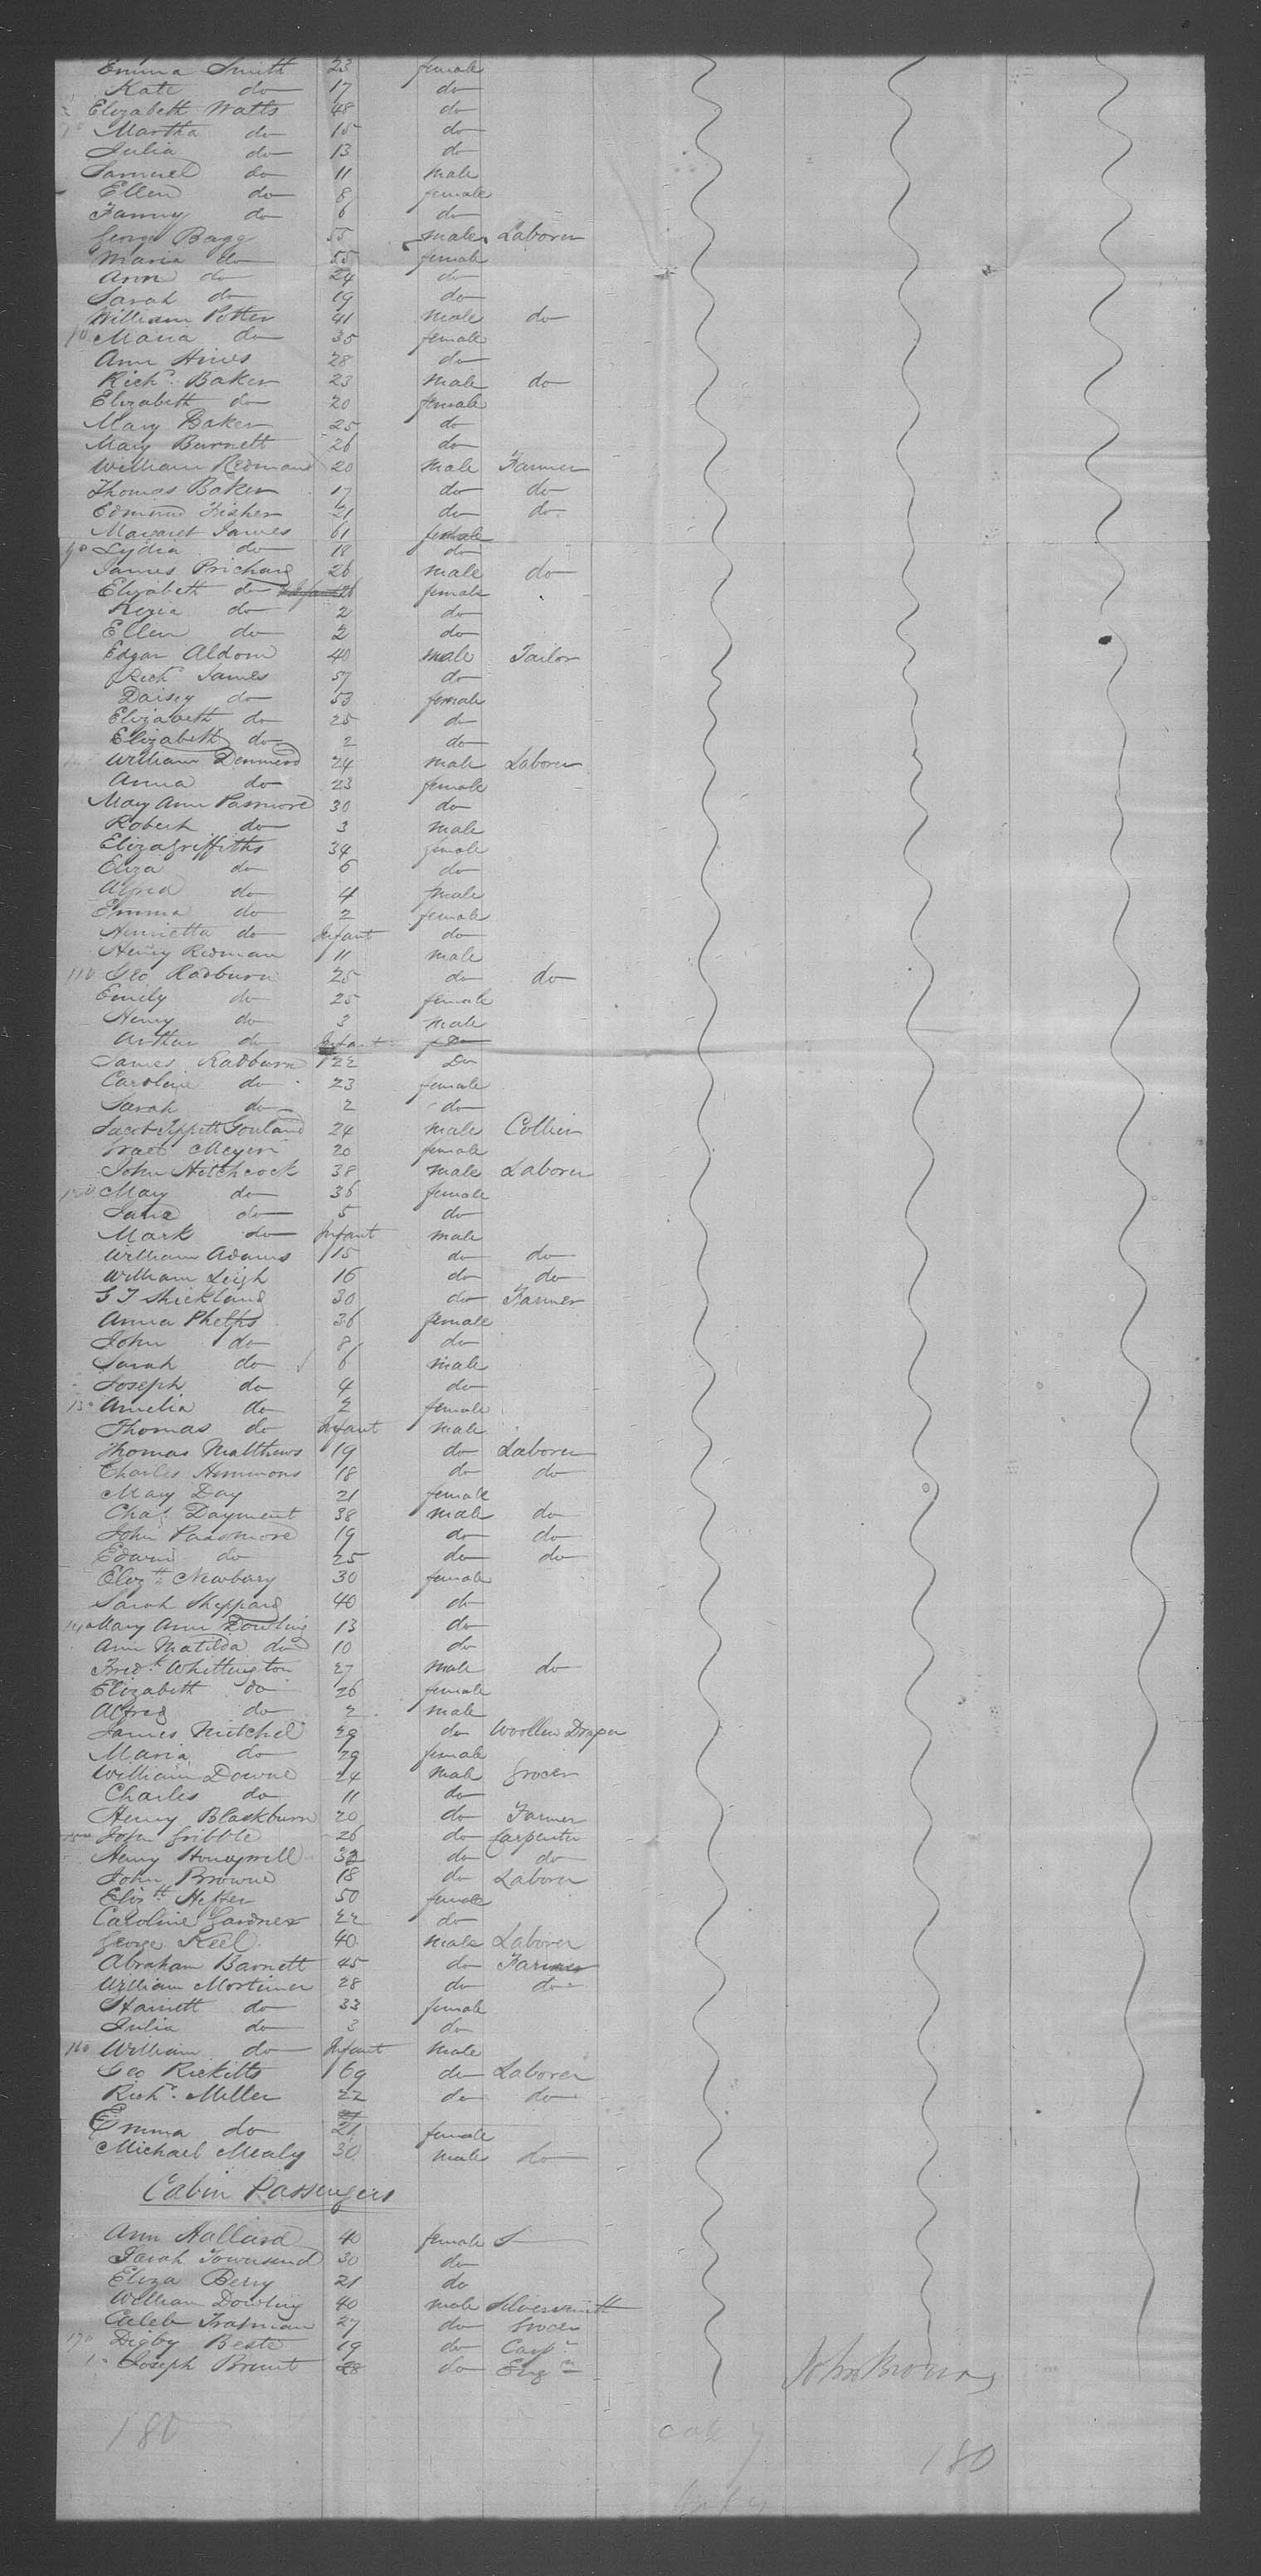 Emma Smith 23 female
Kate do 17 do
Elizabeth Watts 48 do
Martha do 15 do
Julia do 13 do
Samuel do 11 male
Ellen do 8 female
Fanny do 6 do
George Bagg 55 male Laborer
Maria do 55 female
Ann do 24 do
Sarah do 19 do
William Potter 41 male do
Maria do 35 female
Ann Hines 28 do
Richd. Baker 23 male do
Elizabeth do 20 female
Mary Baker 25 do
Mary Burnett 26 do
William Redmand 20 male Farmer
Thomas Baker 17 do do
Edmund Fisher 21 do do
Margaret James 61 female
90 Lydia do 18 do
James Prichard 26 male do
Elizabeth do 26 female
Kezia do 2 do
Ellen do 2 do
Edgar Aldom 40 male Tailor
Richd James 57 do
Daisey do 53 female
Elizabeth do 25 do
Elizabeth do 2 do
William Denmend 24 male Laborer
Anna do 23 female
Mary Ann Passmore 30 do
Robert do 3 male
Eliza Griffiths 34 female
Eliza do 6 do
Alfred do 4 male
Emma do 2 female
Henrietta do Infant do
Henry Redman 11 male
110 Geo Radburn 25 do do
Emily do 25 female
Henry do 3 male
Arthur do Infant Do
James Radburn 22 Do
Caroline do 23 female
Sarah do 2 do
Jacob Gouland 24 male Collier
20 female
John Hitchcock 38 male Laborer
120 Mary do 36 female
Jane do 5 do
Mark do Infant male
William Adams 15 do do
William Leigh 16 do do
30 do Farmer
Anna Phelps 36 female
John do 8 do
Sarah do 6 male
Joseph do 4 do
130 Amelia do 2 female
Thomas do Infant male
Thomas Matthews 19 do Laborer
Charles Hemmons 18 do do
Mary Day 21 female
Chas. Dayment 38 male do
John Passmore 19 do do
Edwin do 25 do do
Elizth Newberry 30 female
Sarah Sheppard 40 do
140 Mary Ann Dowling 13 do
Ann Matilda do 10 do
Fredk Whittington 27 male do
Elizabeth do 26 female
Alfred do 2 male
James Mitchel 29 do Woollen Draper
Maria do 29 female
William Downe 24 male Grocer
Charles do 11 do
Henry Blackburn 20 do Farmer
150 John Gribble 26 do Carpenter
Henry Honeywill 32 do do
John Browne 18 do Laborer
Elizth Heffer 50 female
Caroline Gardner 22 do
George Keel 40 male Laborer
Abraham Barnett 45 do Farmer
William Mortimer 28 do do
Harriett do 33 female
Julia do 3 do
160 William do Infant male
Geo Ricketts 69 do Laborer
Richd. Miller 22 do do
Emma do 21 female
Michael Mealy 30 male do
Cabin Passengers
Ann Halland 40 female
Sarah Townsend 30 do
Eliza Berry 21 do
William Dowling 40 male Silversmith
Caleb Trapman 27 do Grocer
170 Digby Beste 19 do Carpr
Joseph Brunt 28 do Engr
John Brown
180
180